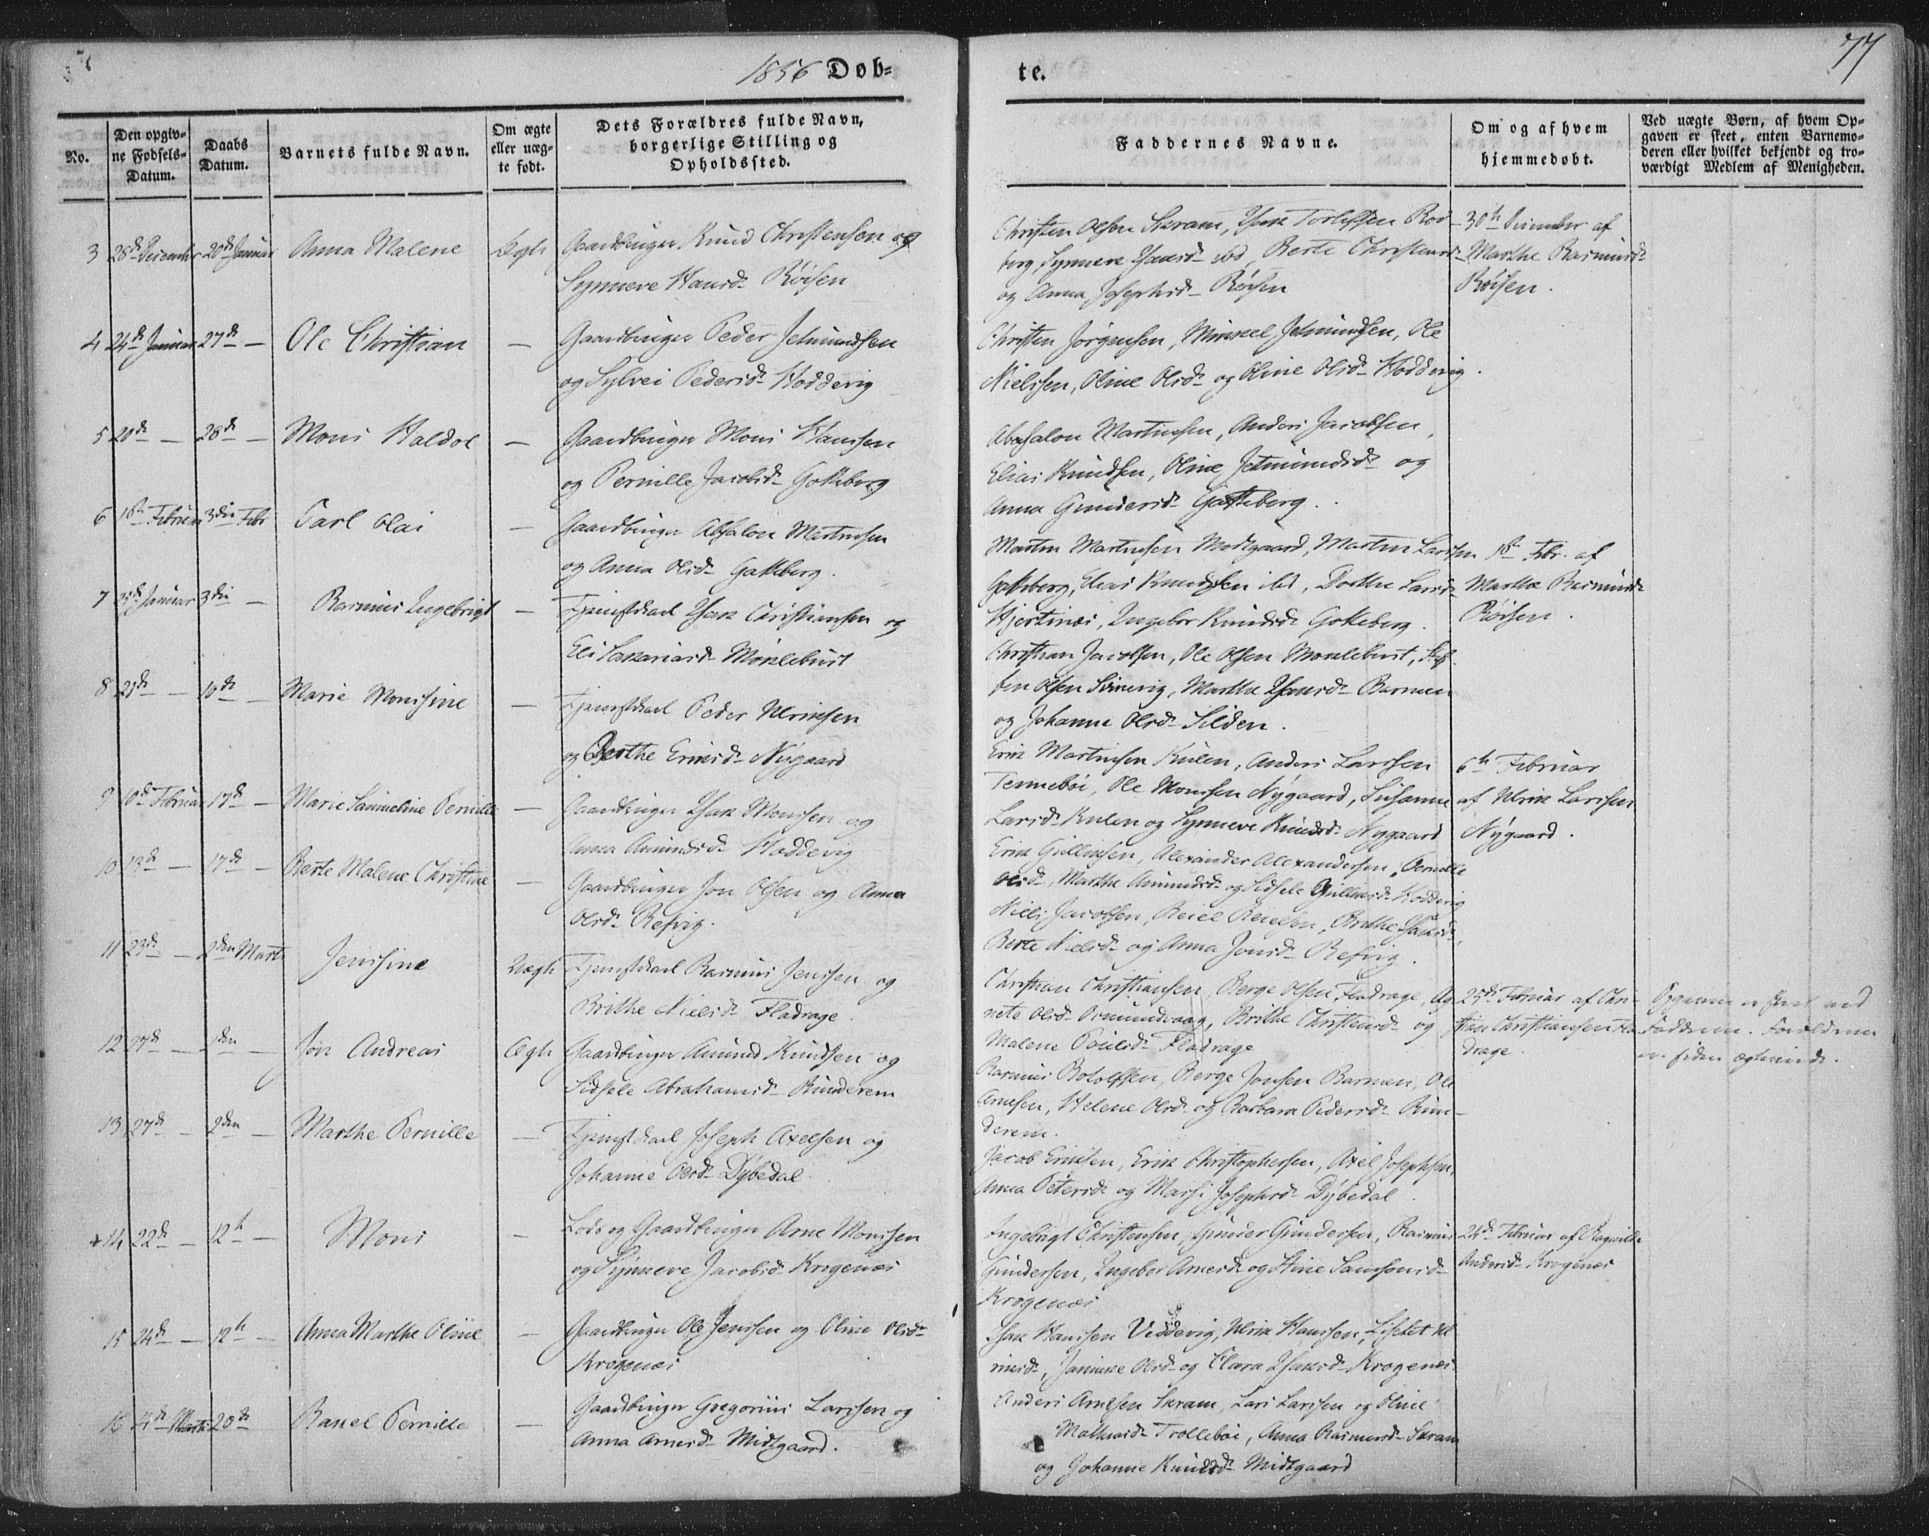 1856 Døb-
te.
77
No.
Den opgiv-
ne Fødsels-
Datum.
Daabs
Datum.
Barnets fulde Navn.
Om ægte
eller uæg-
te født.
Dets Forældres fulde Navn,
borgerlige Stilling og
Opholdssted.
Faddernes Navne.
Om og af hvem
hjemmedøbt.
Ved uægte Børn, af hvem Op-
gaven er skeet, enten Barnemo-
deren eller hvilket bekjendt og tro-
værdigt Medlem af Menigheden.
3 28de December 20de Januar Anna Malene Ægte Gaardbruger Knud Christensen og
Synneve Hansd. Röisen
Christen Olsen Skram, Isak
berg, Synneve Hansd. Berte Christensd.
og Anna Josephsd. Röisen
30te December af
Marthe Rasmusd.
Röisen.
4 24de Januar 27de — Ole Christian — Gaardbruger Peder Jetmundsen
og Sylvei Pedersd. Hoddevig
Christen Jørgensen, Mikkel Jetmundsen, Ole
Nielssen, Oline Olsd. og Oline Olsd. Hoddevig.
5 20de — 28de — Mons Haldor — Gaardbruger Mons Hanssen
og Pernille Jacobsd. Gotteberg
Absalon Martinssen, Anders Jacobsen,
Elias Knudsen, Oline Jetmundsd. og
Anna Gundersd. Gotteberg.
6 1ste Februar 3die Febr Carl Olai — Gaardbruger Absalon Martinssen
og Anna Olsd. Gotteberg.
Morten Martinssen Midtgaard, Morten Larssen
Gotteberg, Elias Knudssen ibd, Dorthe Larsd.
Hjertenæs, Ingebor Knudsd. Gotteberg.
1ste Febr. af
Marthe Rasmusd.
Röisen.
7 Januar 3die — Rasmus Ingebrigt — Tjenestkarl Isak Christiansen og
Eli Sakariasd. Monlebust
Christian Jacobsen, Ole Olsen Monlebust,
Olsen, Marthe Isaksd. Barmen
og Johanne Olsd. Silden.
8 21de — 10de — Marie Monsine — Tjenestkarl Peder Ulriksen
og Berthe Eriksd. Nygaard
Erik Martinssen Kulen, Anders Larssen
Tennebøe, Ole Monssen Nygaard, Susanne
Larsd. Kulen og Synneve Knudsd. Nygaard
6te Februar
af Ulrik Larssen
Nygaard.
9 Februar 17de — Marie Samueline Pernille — Gaardbruger Isak Monssen og
Anna Amundsd. Hoddevig
Erik Gullaksen, Alexander Alexandersen, Pernille
Olsd., Marthe Amundsd. og Sidsele Gullaksd. Hoddevig
10 13de — 17de — Berte Malene Christine — Gaardbruger Jon Olsen og Anna
Olsd. Refvig.
Niels Jacobsen, Brithe Isaksd.,
Berte Nielsd. og Anna Jonsd. Refvig.
11 23de — 2den Marts Jensine Uægte Tjenestkarl Rasmus Jenssen og
Brithe Nielsd. Fladrage.
Christian Christiansen, Børge Olsen Fladrage, Ag-
nete Olsd. Osmundsvaag, Brithe Christensd. og
Malene Poulsd. Fladrage
25de Februar af Chri-
stian Christiansen Fla-
drage.
Opgaven er skeet ved
Faddrene. Forældrene
ere siden ægteviede.
12 27de — 2den — Jon Andreas Ægte Gaardbruger Amund Knudsen og
Sidsele Abrahamsd. Runderem
Rasmus Botolfsen, Børge Jonsen Barmen, Ole
Arnesen, Helene Olsd. og Barbara Pedersd. Run-
derem.
13 27de — 2den — Marthe Pernille — Tjenestkarl Joseph Axelsen og
Johanne Olsd. Dybedal.
Jacob Eriksen, Erik Christophersen, Axel Josephsen,
Anna Petersd. og Marsi Josephsd. Dybedal.
14 22de — 12te — Mons — Lods og Gaardbruger Arne Monssen
og Synneve Jacobsd. Krogenæs
Ingebrigt Christensen, Gunder Gundersen, Rasmus
Gundersen, Ingebor Arnesd. og Stine Samsonsd.
Krogenæs
24de Februar af Ragnilde
Andersd. Krogenæs
15 24de — 12te — Anna Marthe Oline — Gaardbruger Ole Jenssen og Oline Olsd.
Krogenæs
Isak Hanssen Viddevig, Ulrik Hanssen, Lisebet Ul-
riksd., Jensine Olsd. og Clara Isaksd. Krogenæs.
16 Marts 20de Rakel Pernille — Gaardbruger Gregorius Larssen og
Anna Arnesd. Midtgaard.
Anders Arnesen Skram, Lars Larssen og Oline
Mathiasd. Trollebøe, Anna Rasmusd. Skram
og Johanne Knudsd. Midtgaard